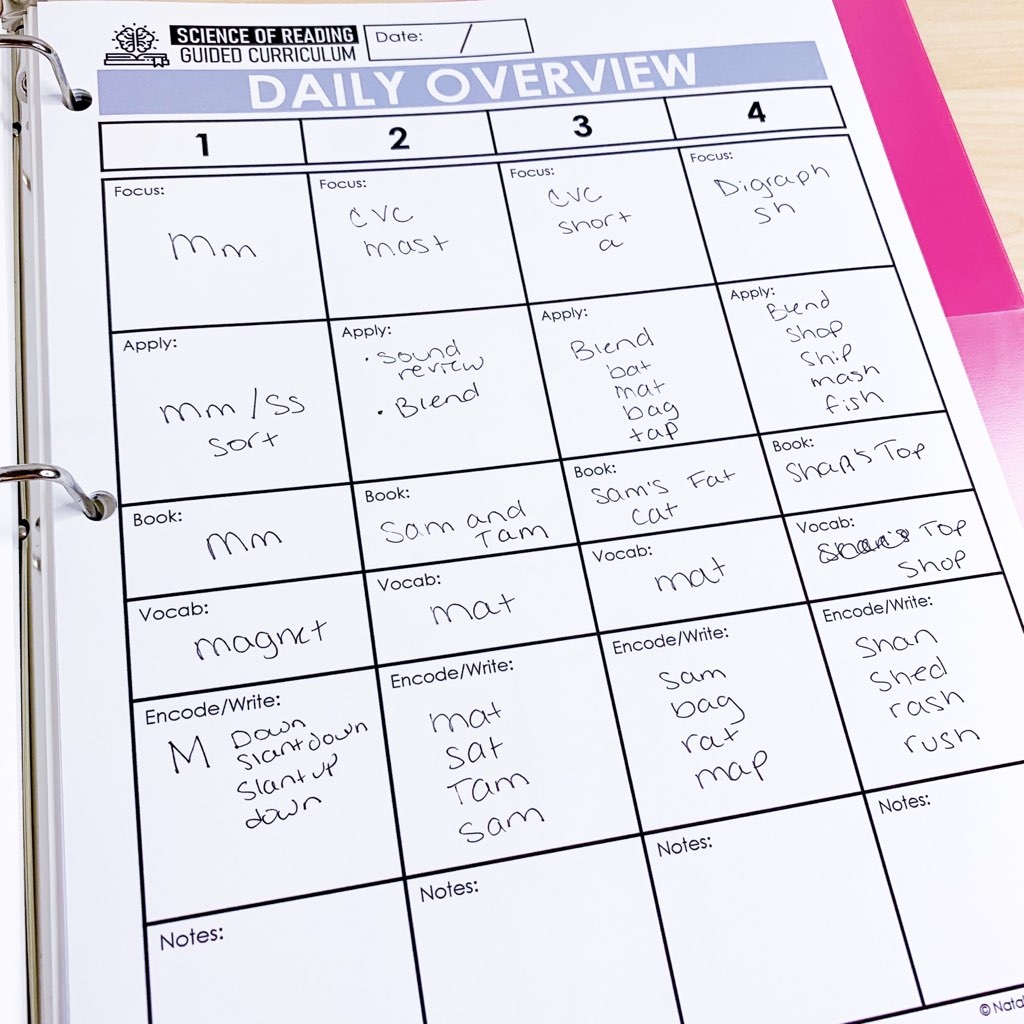 SCIENCE OF READING
GUIDED CURRICULUM
Date: /
DAILY OVERVIEW
1 2 3 4
Focus:
Mm
Focus:
CVC
mast
Focus:
CVC
short
a
Focus:
Digraph
sh
Apply:
mm / Ss
sort
Apply:
• sound
review
• Blend
Apply:
Blend
bat
mat
bag
tap
Apply:
Blend
shop
ship
mash
fish
Book:
Mm
Book:
Sam and
Tam
Book:
Sam's Fat
Cat
Book:
Shan's Top
Vocab:
magnet
Vocab:
mat
Vocab:
mat
Vocab:
Top
Shop
Encode/Write:
M Down
Slant down
Slant up
down
Encode/Write:
mat
sat
Tam
Sam
Encode/Write:
Sam
bag
rat
map
Encode/Write:
Shan
Shed
rash
rush
Notes:
Notes:
Notes:
Notes: